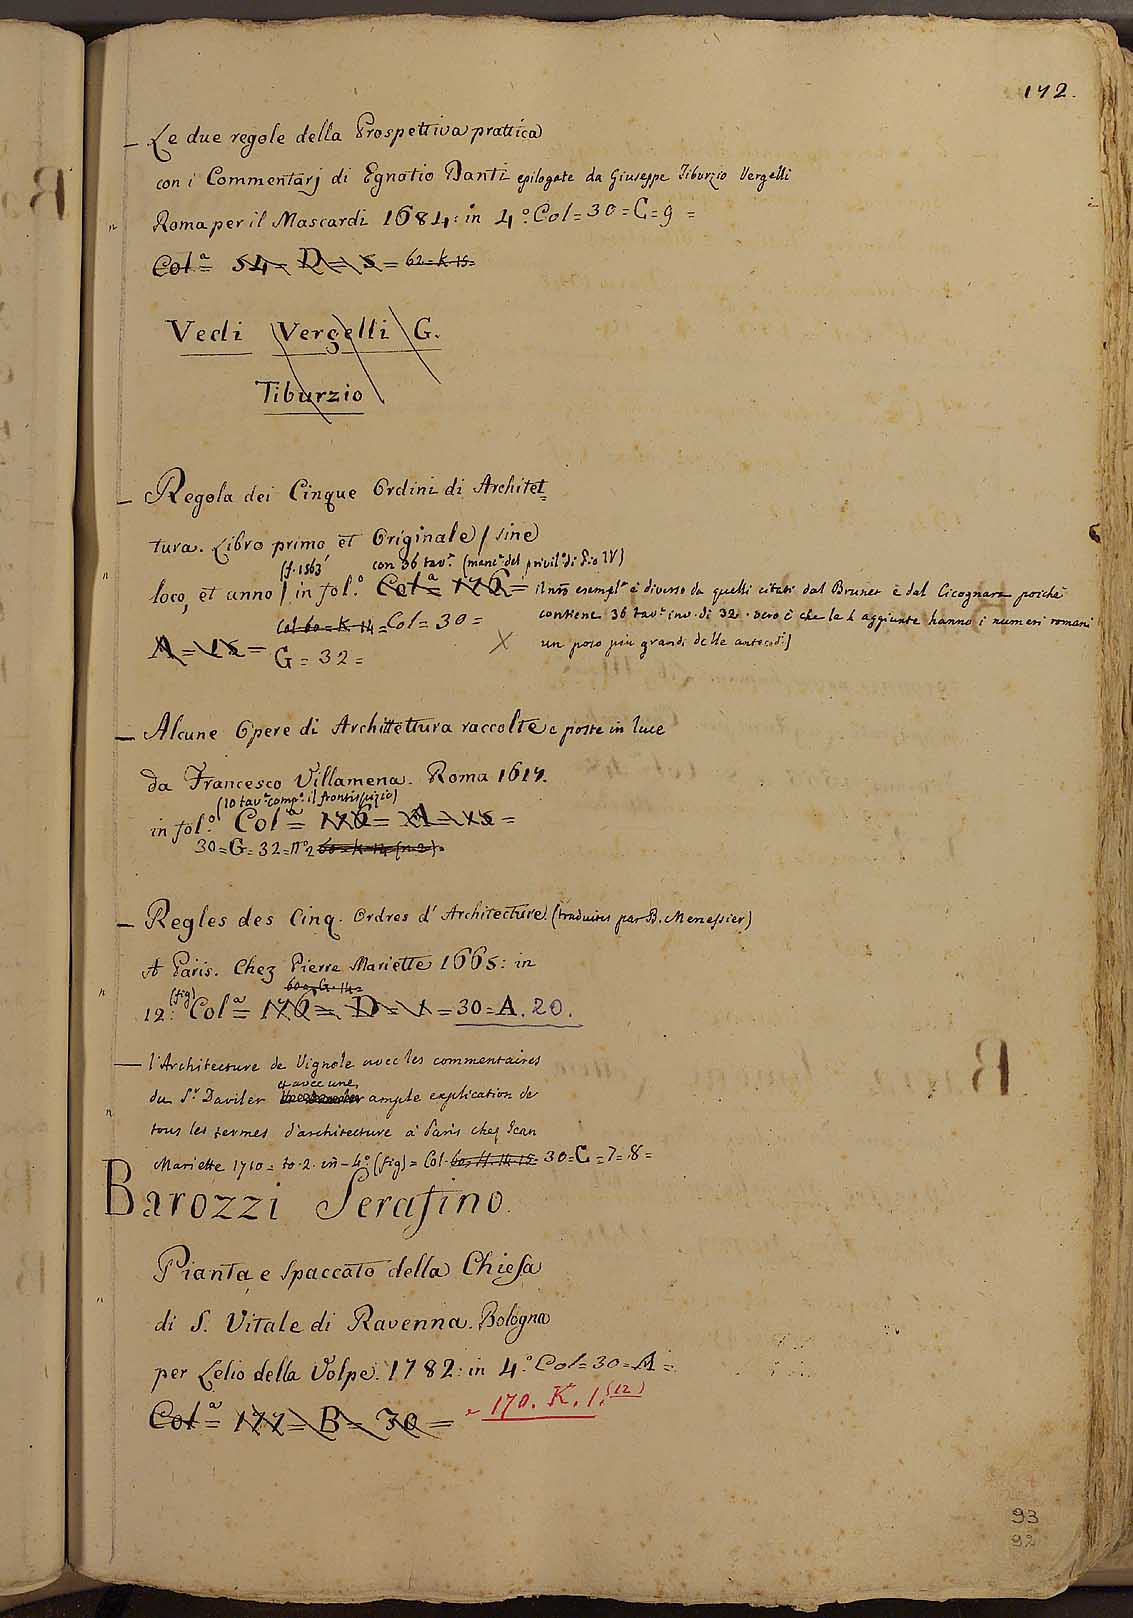 172.
– Le due regole della Prospettiva prattica
con i Commentarj di Egnatio Danti epilogate da Giuseppe Tiburzio Vergelli
Roma per il Mascardi 1684: in 4.° Col = 30 = C = 9 =
Col.ª = 54 = D = 5 = 62 = K. 15 =
Vedi Vergelli G.
Tiburzio
– Regola dei Cinque Ordini di Architet=
tura. Libro primo et Originale / sine
(f. 1563 con 36 tav.e (manc.e del privil.o di Pio IV)
loco, et anno / in fol.° Col.ª = 176 = il nro esempl.e è diverso da quelli citati dal Brunet e dal Cicognara poichè
Col. 60 = K. 14 = Col = 30 = contiene 36 tav.e inv. di 32. vero è che le 4 aggiunte hanno i numeri romani
A = 15 = G = 32 = X un poco più grandi delle anteced.i)
– Alcune Opere di Architettura raccolte e poste in luce
da Francesco Villamena. Roma 1617.
(10 tav.e comp.o il frontispizio)
in fol.° Col.ª = 176 = A = 15 =
30 = G = 32 = n.° 2 60 = K. 14 (n. 2) =
– Regles des Cinq. Ordres d' Architecture (traduites par B. Menessier)
A Paris. Chez Pierre Mariette 1665: in
60 = G. 14 =
12.° (fig) Col.ª = 176 = D = 1 = 30 = A. 20.
– l'Architecture de Vignole avec les commentaires
et avec une
du S.r Daviler ample explication de
tous les termes d'architecture à Paris chez Jean
Mariette 1710 = to. 2. in – 4.° (fig) = Col. 60, H. 14. 15 = 30 = C = 7 = 8 =
Barozzi Serafino.
Pianta e Spaccato della Chiesa
di S. Vitale di Ravenna. Bologna
per Lelio della Volpe. 1782: in 4.° Col = 30 = A =
Col.ª = 177 = B = 30 = 170. K. 1. (12)
93
92